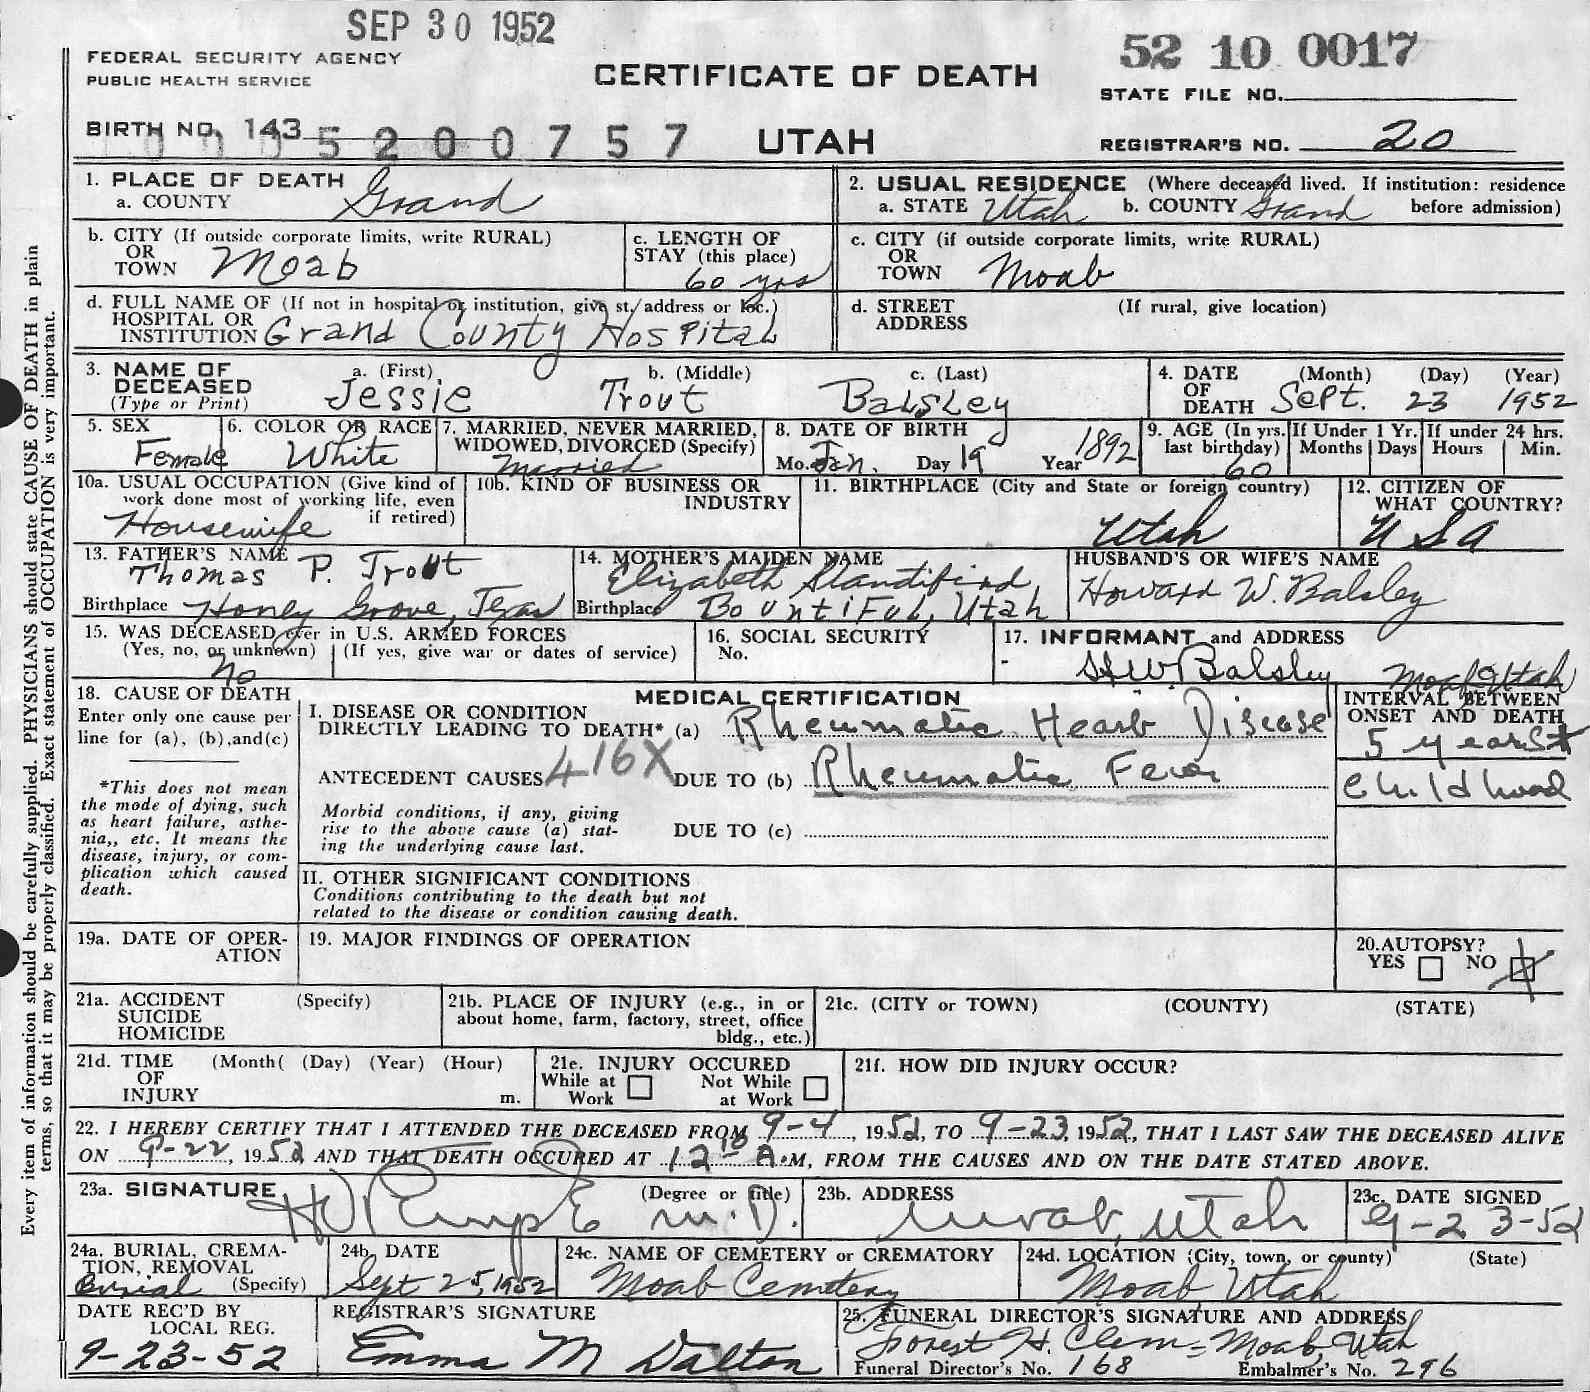 SEP 30 1952
FEDERAL SECURITY AGENCY
PUBLIC HEALTH SERVICE
CERTIFICATE OF DEATH
52 10 0017
STATE FILE NO.
BIRTH NO. 143
5200757
UTAH
REGISTRAR'S NO. 20
1. PLACE OF DEATH
a. COUNTY Grand
2. USUAL RESIDENCE (Where deceased lived. If institution: residence
a. STATE Utah b. COUNTY Grand before admission)
b. CITY (If outside corporate limits, write RURAL)
OR
TOWN Moab
c. LENGTH OF
STAY (this place)
60 yrs
c. CITY (if outside corporate limits, write RURAL)
OR
TOWN Moab
d. FULL NAME OF (If not in hospital or institution, give st./address or loc.)
HOSPITAL OR
INSTITUTION Grand County Hospital
d. STREET (If rural, give location)
ADDRESS
3. NAME OF a. (First) b. (Middle) c. (Last)
DECEASED Jessie Trout Balsley
(Type or Print)
4. DATE (Month) (Day) (Year)
OF
DEATH Sept. 23 1952
5. SEX
Female
6. COLOR OR RACE
White
7. MARRIED, NEVER MARRIED,
WIDOWED, DIVORCED (Specify)
Married
8. DATE OF BIRTH
Mo. Jan. Day 19 Year 1892
9. AGE (In yrs.
last birthday)
60
If Under 1 Yr.
Months Days
If under 24 hrs.
Hours Min.
10a. USUAL OCCUPATION (Give kind of
work done most of working life, even
if retired)
Housewife
10b. KIND OF BUSINESS OR
INDUSTRY
11. BIRTHPLACE (City and State or foreign country)
Utah
12. CITIZEN OF
WHAT COUNTRY?
USA
13. FATHER'S NAME
Thomas P. Trout
Birthplace Honey Grove, Texas
14. MOTHER'S MAIDEN NAME
Elizabeth Standifird
Birthplace Bountiful, Utah
HUSBAND'S OR WIFE'S NAME
Howard W. Balsley
15. WAS DECEASED ever in U.S. ARMED FORCES
(Yes, no, or unknown) (If yes, give war or dates of service)
No
16. SOCIAL SECURITY
No.
17. INFORMANT and ADDRESS
H.W. Balsley Moab Utah
18. CAUSE OF DEATH
Enter only one cause per
line for (a), (b), and(c)
*This does not mean
the mode of dying, such
as heart failure, asthe-
nia,, etc. It means the
disease, injury, or com-
plication which caused
death.
MEDICAL CERTIFICATION
I. DISEASE OR CONDITION
DIRECTLY LEADING TO DEATH* (a) Rheumatic Heart Disease
ANTECEDENT CAUSES 416X DUE TO (b) Rheumatic Fever
Morbid conditions, if any, giving
rise to the above cause (a) stat-
ing the underlying cause last.
DUE TO (c)
INTERVAL BETWEEN
ONSET AND DEATH
5 years+
Childhood
II. OTHER SIGNIFICANT CONDITIONS
Conditions contributing to the death but not
related to the disease or condition causing death.
19a. DATE OF OPER-
ATION
19. MAJOR FINDINGS OF OPERATION
20. AUTOPSY?
YES NO
21a. ACCIDENT (Specify)
SUICIDE
HOMICIDE
21b. PLACE OF INJURY (e.g., in or
about home, farm, factory, street, office
bldg., etc.)
21c. (CITY or TOWN) (COUNTY) (STATE)
21d. TIME (Month( (Day) (Year) (Hour)
OF
INJURY m.
21e. INJURY OCCURED
While at Work Not While at Work
21f. HOW DID INJURY OCCUR?
22. I HEREBY CERTIFY THAT I ATTENDED THE DECEASED FROM 9-4, 1952, TO 9-23, 1952, THAT I LAST SAW THE DECEASED ALIVE
ON 9-22, 1952 AND THAT DEATH OCCURED AT 12 10 A.M, FROM THE CAUSES AND ON THE DATE STATED ABOVE.
23a. SIGNATURE (Degree or title)
M.D.
23b. ADDRESS
Moab, Utah
23c. DATE SIGNED
9-23-52
24a. BURIAL, CREMA-
TION, REMOVAL
Burial (Specify)
24b. DATE
Sept 25, 1952
24c. NAME OF CEMETERY or CREMATORY
Moab Cemetery
24d. LOCATION (City, town, or county) (State)
Moab Utah
DATE REC'D BY
LOCAL REG.
9-23-52
REGISTRAR'S SIGNATURE
Emma M Dalton
25. FUNERAL DIRECTOR'S SIGNATURE AND ADDRESS
Forest H. Clem - Moab, Utah
Funeral Director's No. 168 Embalmer's No. 296
Every item of information should be carefully supplied. PHYSICIANS should state CAUSE OF DEATH in plain
terms, so that it may be properly classified. Exact statement of OCCUPATION is very important.